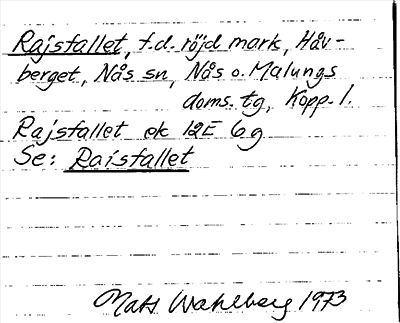 Rajsfallet, f.d. röjd mark, Håv-
berget, Nås sn, Nås o. Malungs
doms. tg, Kopp. l.
Rajsfallet ek 12E 6g
Se: Raisfallet
Mats Wahlberg 1973